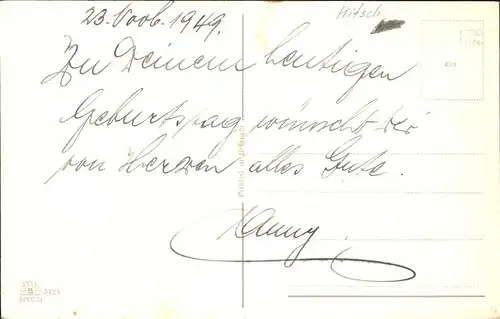 23. Novb. 1949.
Kitsch
Zu Deinem heutigen
Geburtstag wünscht Dir
von Herzen alles Gute.
Hanny.